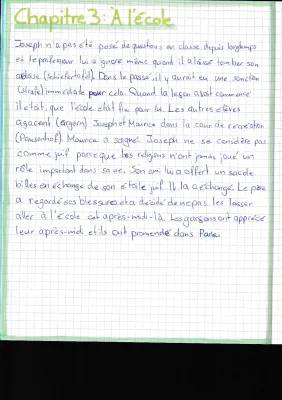 Chapitre 3: À l'école
Joseph n'a pas été posé de questions en classe depuis longtemps
et le professeur l'a ignoré même quand il a laissé tomber son
ardoise (Schiefertafel). Dans le passé il y aurait eu une sanction
(Strafe) immédiate pour cela. Quand la leçon avait commencé
il était, que l'école était fini pour lui. Les autres élèves
agacent (ärgern) Joseph et Maurice dans la cour de recréation
(Pausenhof). Maurice a saigné. Joseph ne se considère pas
comme juif parce que les religions n'ont jamais joué un
rôle important dans sa vie. Son ami lui a offert un sac de
billes en échange de son étoile juif. Il l'a échangé. Le père
a regardé ses blessures et a décidé de ne pas les laisser
aller à l'école cet après-midi-là. Les garçons ont apprécié
leur après-midi et ils ont promené dans Paris.